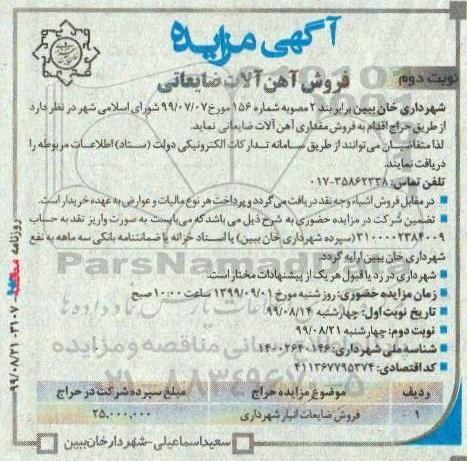 آگهی مزایده
نوبت دوم
فروش آهن آلات ضایعاتی
شهرداری خان ببین برابر بند ۲ مصوبه شماره ۱۵۶ مورخ ۹۹/۰۷/۰۷ شورای اسلامی شهر در نظر دارد
از طریق حراج اقدام به فروش مقداری آهن آلات ضایعاتی نماید.
لذا متقاضیان می توانند از طریق سامانه تدارکات الکترونیکی دولت (ستاد) اطلاعات مربوطه را
دریافت نمایند.
تلفن تماس: ۳۵۸۶۲۳۳۸-۰۱۷
در مقابل فروش اشیاء وجه نقد دریافت می گردد و پرداخت هر نوع مالیات و عوارض به عهده خریدار است.
تضمین شرکت در مزایده حضوری به شرح ذیل می باشد که می بایست به صورت واریز نقد به حساب
۳۱۰۰۰۰۲۳۸۴۰۰۹ (سپرده شهرداری خان ببین) یا اسناد خزانه یا ضمانتنامه بانکی سه ماهه به نفع
شهرداری خان ببین ارایه گردد.
شهرداری در رد یا قبول هر یک از پیشنهادات مختار است.
زمان مزایده حضوری: روز شنبه مورخ ۱۳۹۹/۰۹/۰۱ ساعت ۱۰:۰۰ صبح
تاریخ نوبت اول: چهارشنبه ۹۹/۰۸/۱۴
نوبت دوم: چهارشنبه ۹۹/۰۸/۲۱
شناسه ملی شهرداری: ۱۴۰۰۰۲۶۴۰۱۴۶
کد اقتصادی: ۴۱۱۳۶۷۷۹۵۳۷۴
ردیف موضوع مزایده حراج مبلغ سپرده شرکت در حراج
۱- فروش ضایعات انبار شهرداری ۲۵,۰۰۰,۰۰۰
سعید اسماعیلی - شهردار خان ببین
روزنامه ۳۱۰۷ - ۹۹/۰۸/۲۱
ParsNamadData